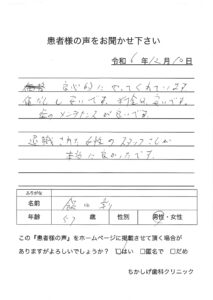 患者様の声をお聞かせ下さい
令和 6 年 12 月 10 日
良心的にやってくれています
信らいし安いです。お金は良いです。
歯のメンテナンスが良いです。
退職された女性のスタッフさんが
本当に良かったです。
ふりがな
名前
年齢 57 歳 性別 男性・女性
この『患者様の声』をホームページに掲載させて頂く場合が
ありますがよろしいでしょうか? □はい □匿名で □だめ
ちかしげ歯科クリニック